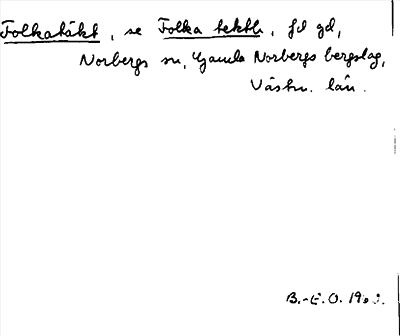 Folkatäkt, se Folka tekth, fd gd,
Norbergs sn, Gamla Norbergs bergslag,
Västm. län.
B.-E.O.